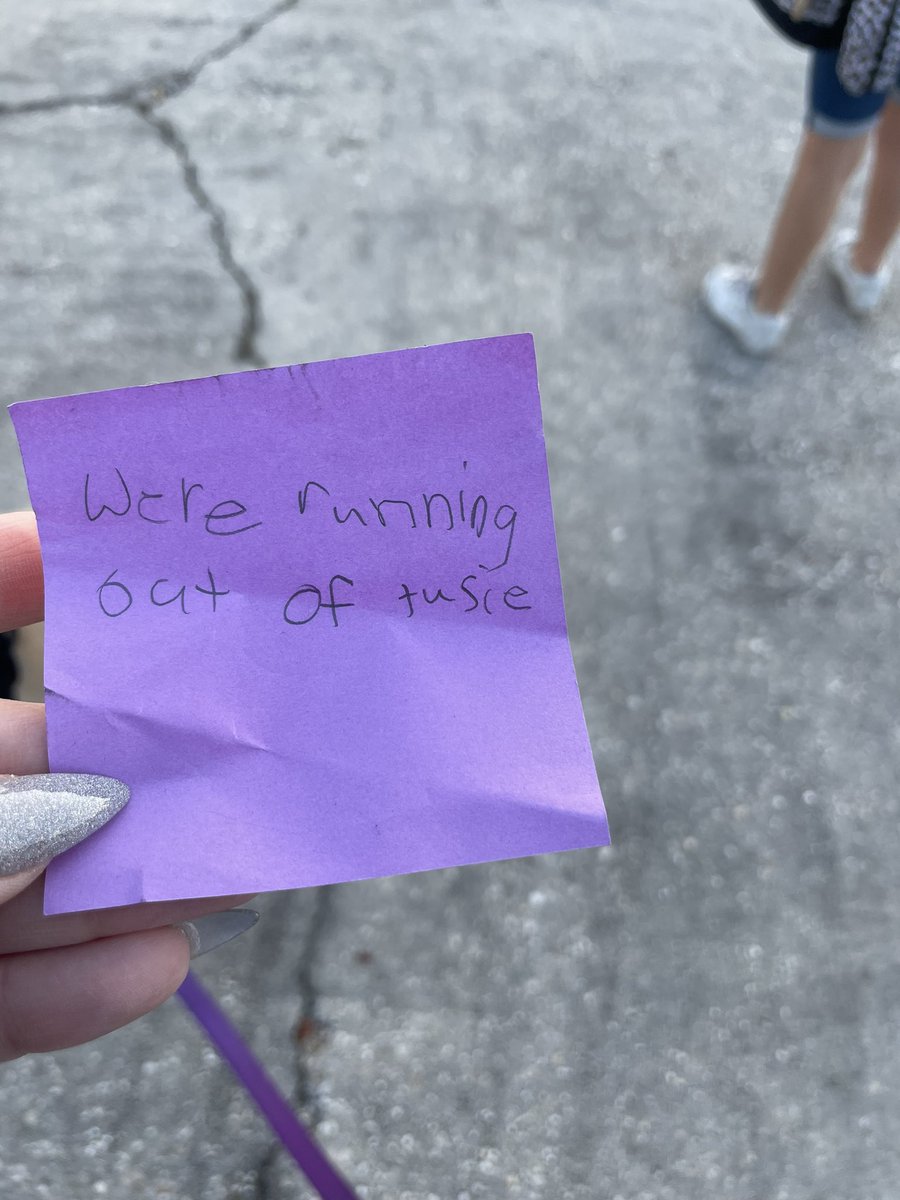 Were running
out of tusie